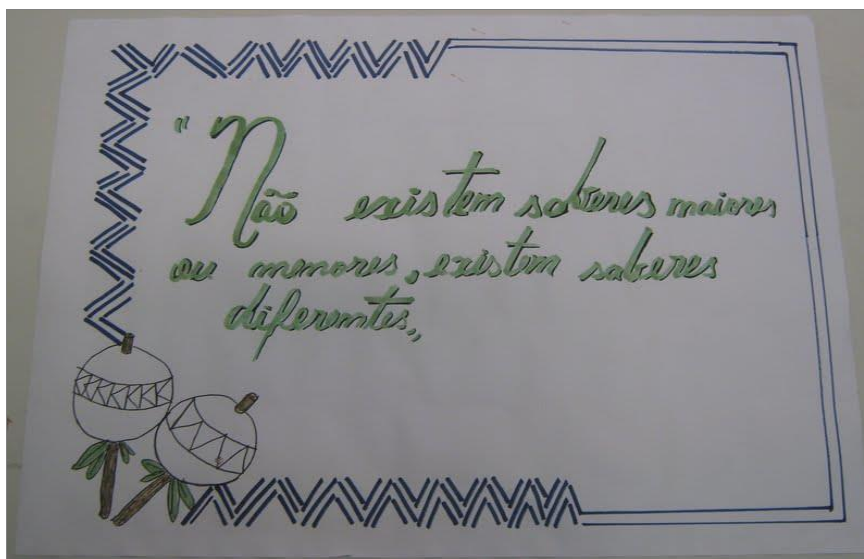 "Não existem saberes maiores
ou menores, existem saberes
diferentes"